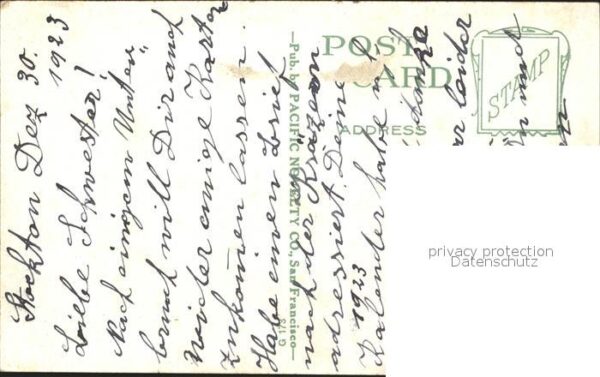 Stockton Dez 30.
1923
Liebe Schwester!
Nach einigem Unter„
bruch will Dir auch
wider einige Karten
zukom̅en lassen.
Habe einen Brief
nach der
adressiert. Deine
1923
Kalender habe ich
danke
leider
und
POST CARD
ADDRESS
STAMP
—Pub. by PACIFIC NOVELTY CO., San Francisco—
privacy protection
Datenschutz